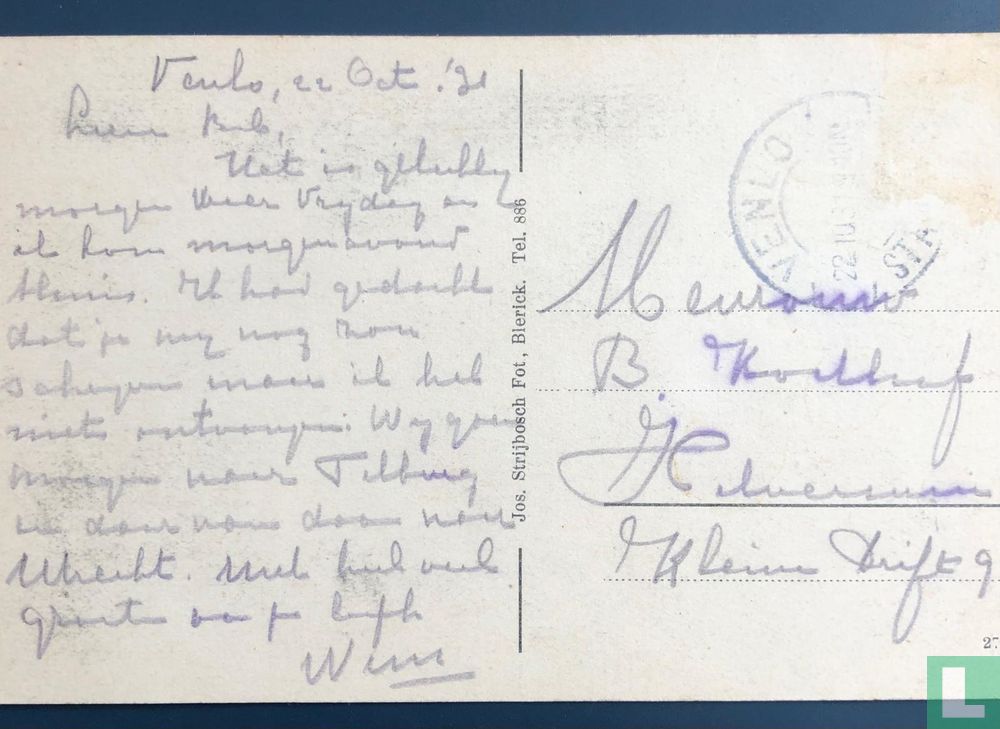 Venlo, 22 Oct. '31
Lieve Bob,
Het is gelukkig
morgen weer Vrydag en
ik kom morgenavond
thuis. Ik had gedacht
dat je my nog zou
schryven maar ik heb
niets ontvangen. Wy gaan
morgen naar Tilburg
en daar van daan naar
Utrecht. Met heel veel
groeten van je liefh
Wim
Jos. Strijbosch Fot., Blerick. Tel. 886
VENLO
STA
Mevrouw
B
Hilversum
Kleine Drift 9
27
L